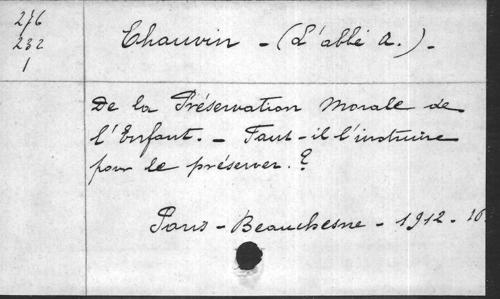 276
232
1
Chauvin - (L'abbé A.) -
De la Préservation Morale de
l'Enfant. - Faut-il l'instruire
pour le préserver. ?
Paris - Beauchesne - 1912 - 16